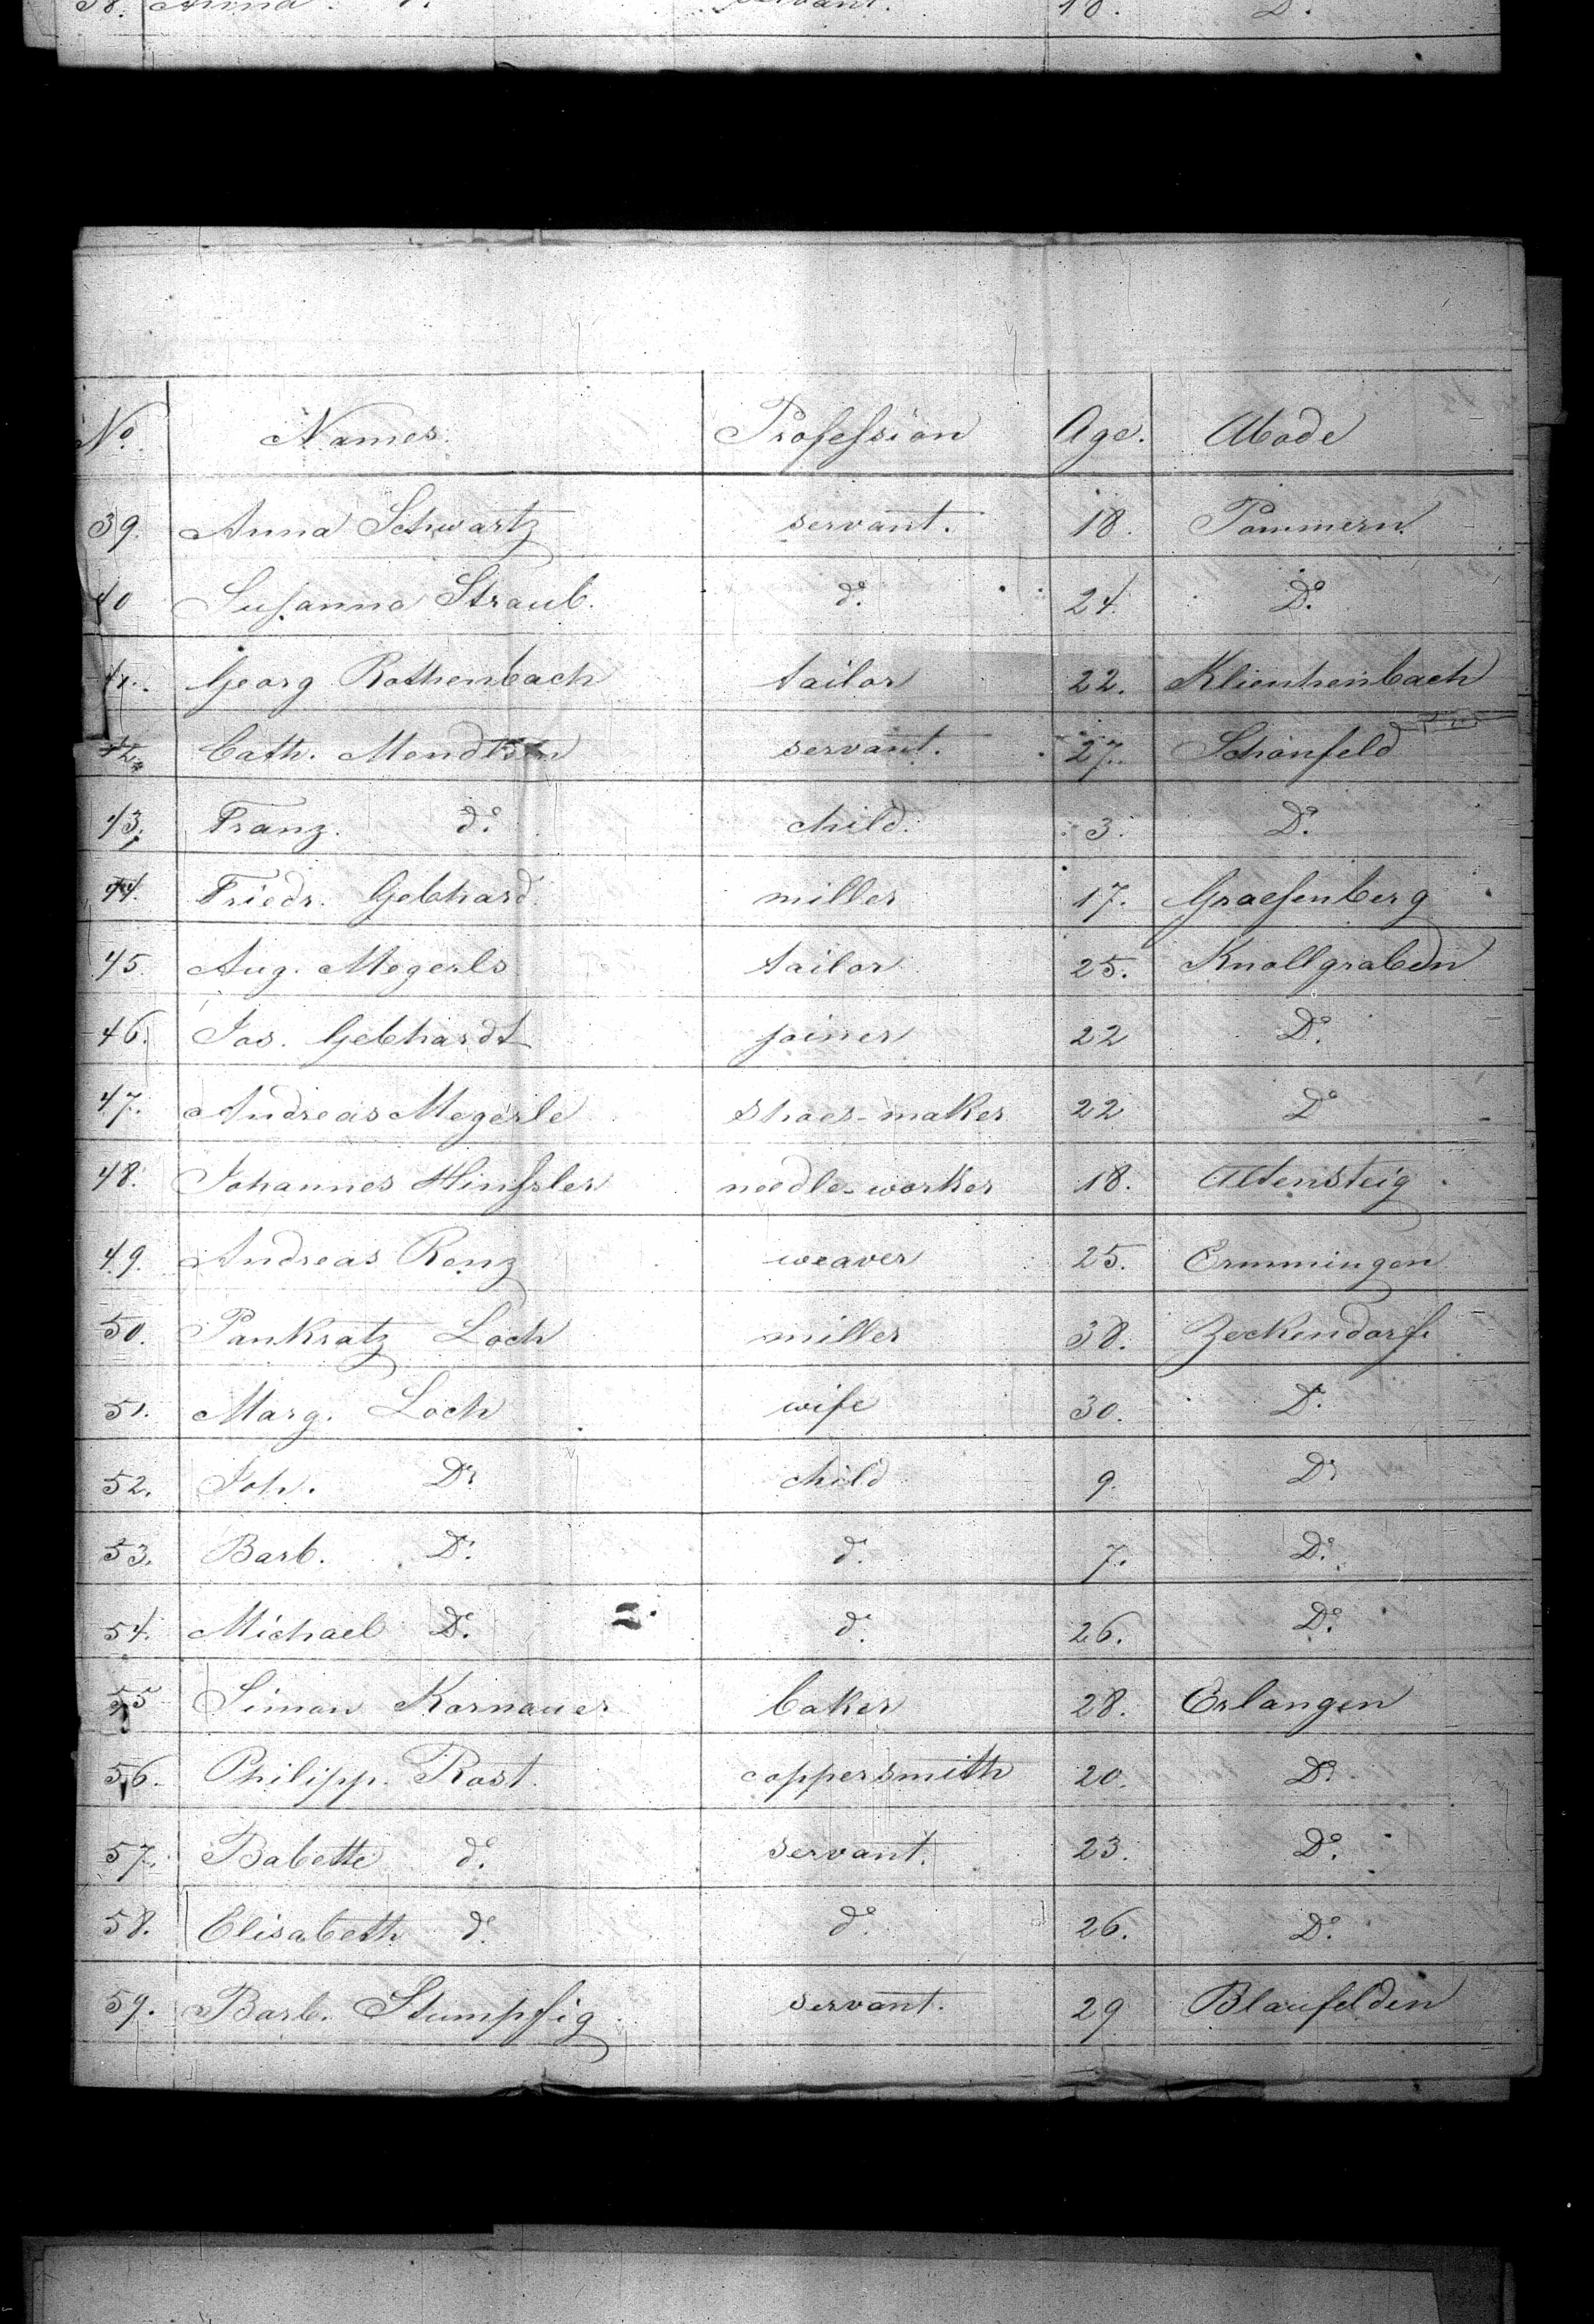 38. Anna d. servant. 18. D.
No. Names. Profession Age. Abode
39. Anna Schwartz servant. 18. Pommern.
40 Susanna Straub. do. 24. Do.
41. Georg Rothenbach tailor 22. Klienhenbach
42. Cath. servant. 27. Schönfeld
43. Franz. do. child. 3. Do.
44. Friedr. Gebhard. miller 17. Graefenberg
45. Aug. Megerls tailor 25. Knollgraben
46. Jos. Gebhardt joiner 22 Do.
47. Andreas Megerle shoes-maker 22 Do
48. Johannes needle-worker 18. Altensteig
49. Andreas Renz weaver 25. Ermmingen
50. Pankratz Loch miller 38. Zeckendorf.
51. Marg. Loch wife 30. Do.
52. Joh. Do child 9. Do
53. Barb. Do. do. 7. Do.
54. Michael Do. do. 26. Do.
55 Simon Kornauer baker 28. Erlangen
56. Philipp. Rost. coppersmith 20. Do
57. Babette do. servant. 23. Do.
58. Elisabeth do. do. 26. Do.
59. Barb. Stumpfig servant. 29 Blaufelden